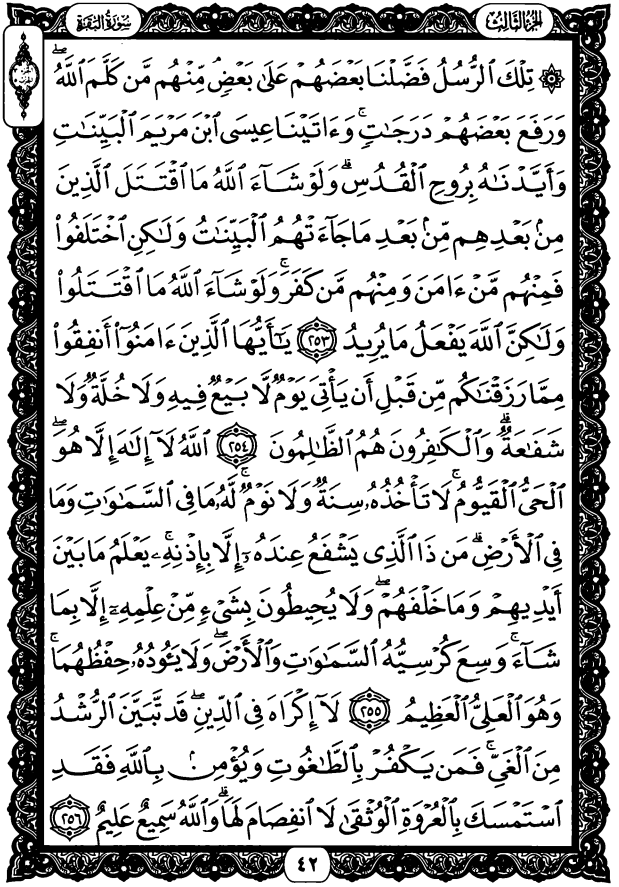 الجزء الثالث
سورة البقرة
۞ تِلْكَ ٱلرُّسُلُ فَضَّلْنَا بَعْضَهُمْ عَلَىٰ بَعْضٍ مِّنْهُم مَّن كَلَّمَ ٱللَّهُ ۖ
وَرَفَعَ بَعْضَهُمْ دَرَجَٰتٍ ۚ وَءَاتَيْنَا عِيسَى ٱبْنَ مَرْيَمَ ٱلْبَيِّنَٰتِ
وَأَيَّدْنَٰهُ بِرُوحِ ٱلْقُدُسِ ۗ وَلَوْ شَآءَ ٱللَّهُ مَا ٱقْتَتَلَ ٱلَّذِينَ
مِنۢ بَعْدِهِم مِّنۢ بَعْدِ مَا جَآءَتْهُمُ ٱلْبَيِّنَٰتُ وَلَٰكِنِ ٱخْتَلَفُوا۟
فَمِنْهُم مَّنْ ءَامَنَ وَمِنْهُم مَّن كَفَرَ ۚ وَلَوْ شَآءَ ٱللَّهُ مَا ٱقْتَتَلُوا۟
وَلَٰكِنَّ ٱللَّهَ يَفْعَلُ مَا يُرِيدُ ٢٥٣ يَٰٓأَيُّهَا ٱلَّذِينَ ءَامَنُوٓا۟ أَنفِقُوا۟
مِمَّا رَزَقْنَٰكُم مِّن قَبْلِ أَن يَأْتِىَ يَوْمٌ لَّا بَيْعٌ فِيهِ وَلَا خُلَّةٌ وَلَا
شَفَٰعَةٌ ۗ وَٱلْكَٰفِرُونَ هُمُ ٱلظَّٰلِمُونَ ٢٥٤ ٱللَّهُ لَآ إِلَٰهَ إِلَّا هُوَ ۖ
ٱلْحَىُّ ٱلْقَيُّومُ ۚ لَا تَأْخُذُهُۥ سِنَةٌ وَلَا نَوْمٌ ۚ لَّهُۥ مَا فِى ٱلسَّمَٰوَٰتِ وَمَا
فِى ٱلْأَرْضِ ۗ مَن ذَا ٱلَّذِى يَشْفَعُ عِندَهُۥٓ إِلَّا بِإِذْنِهِۦ ۚ يَعْلَمُ مَا بَيْنَ
أَيْدِيهِمْ وَمَا خَلْفَهُمْ ۖ وَلَا يُحِيطُونَ بِشَىْءٍ مِّنْ عِلْمِهِۦٓ إِلَّا بِمَا
شَآءَ ۚ وَسِعَ كُرْسِيُّهُ ٱلسَّمَٰوَٰتِ وَٱلْأَرْضَ ۖ وَلَا يَـُٔودُهُۥ حِفْظُهُمَا ۚ
وَهُوَ ٱلْعَلِىُّ ٱلْعَظِيمُ ٢٥٥ لَآ إِكْرَاهَ فِى ٱلدِّينِ ۖ قَد تَّبَيَّنَ ٱلرُّشْدُ
مِنَ ٱلْغَىِّ ۚ فَمَن يَكْفُرْ بِٱلطَّٰغُوتِ وَيُؤْمِنۢ بِٱللَّهِ فَقَدِ
ٱسْتَمْسَكَ بِٱلْعُرْوَةِ ٱلْوُثْقَىٰ لَا ٱنفِصَامَ لَهَا ۗ وَٱللَّهُ سَمِيعٌ عَلِيمٌ ٢٥٦
٤٢